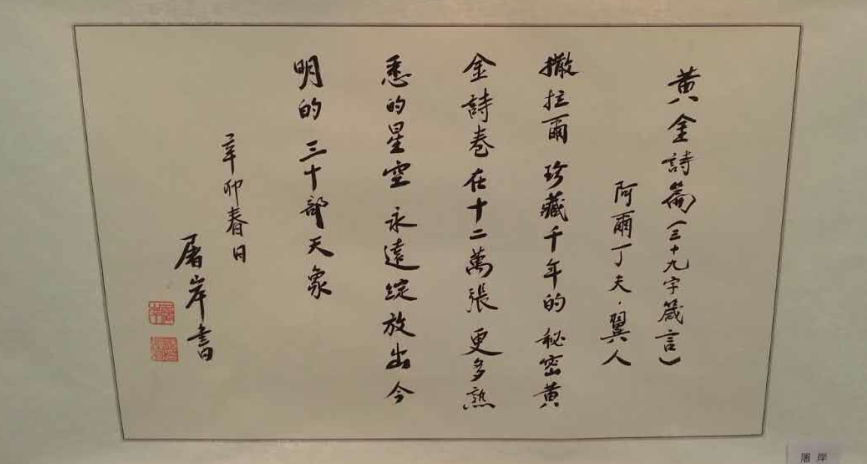 黄金詩篇(三十九字箴言)
阿爾丁夫·翼人
撒拉爾 珍藏千年的 秘密黄
金詩卷 在十二萬張 更多熟
悉的星空 永遠綻放出今
明的 三十部天象
辛卯春日
屠岸書
屠岸